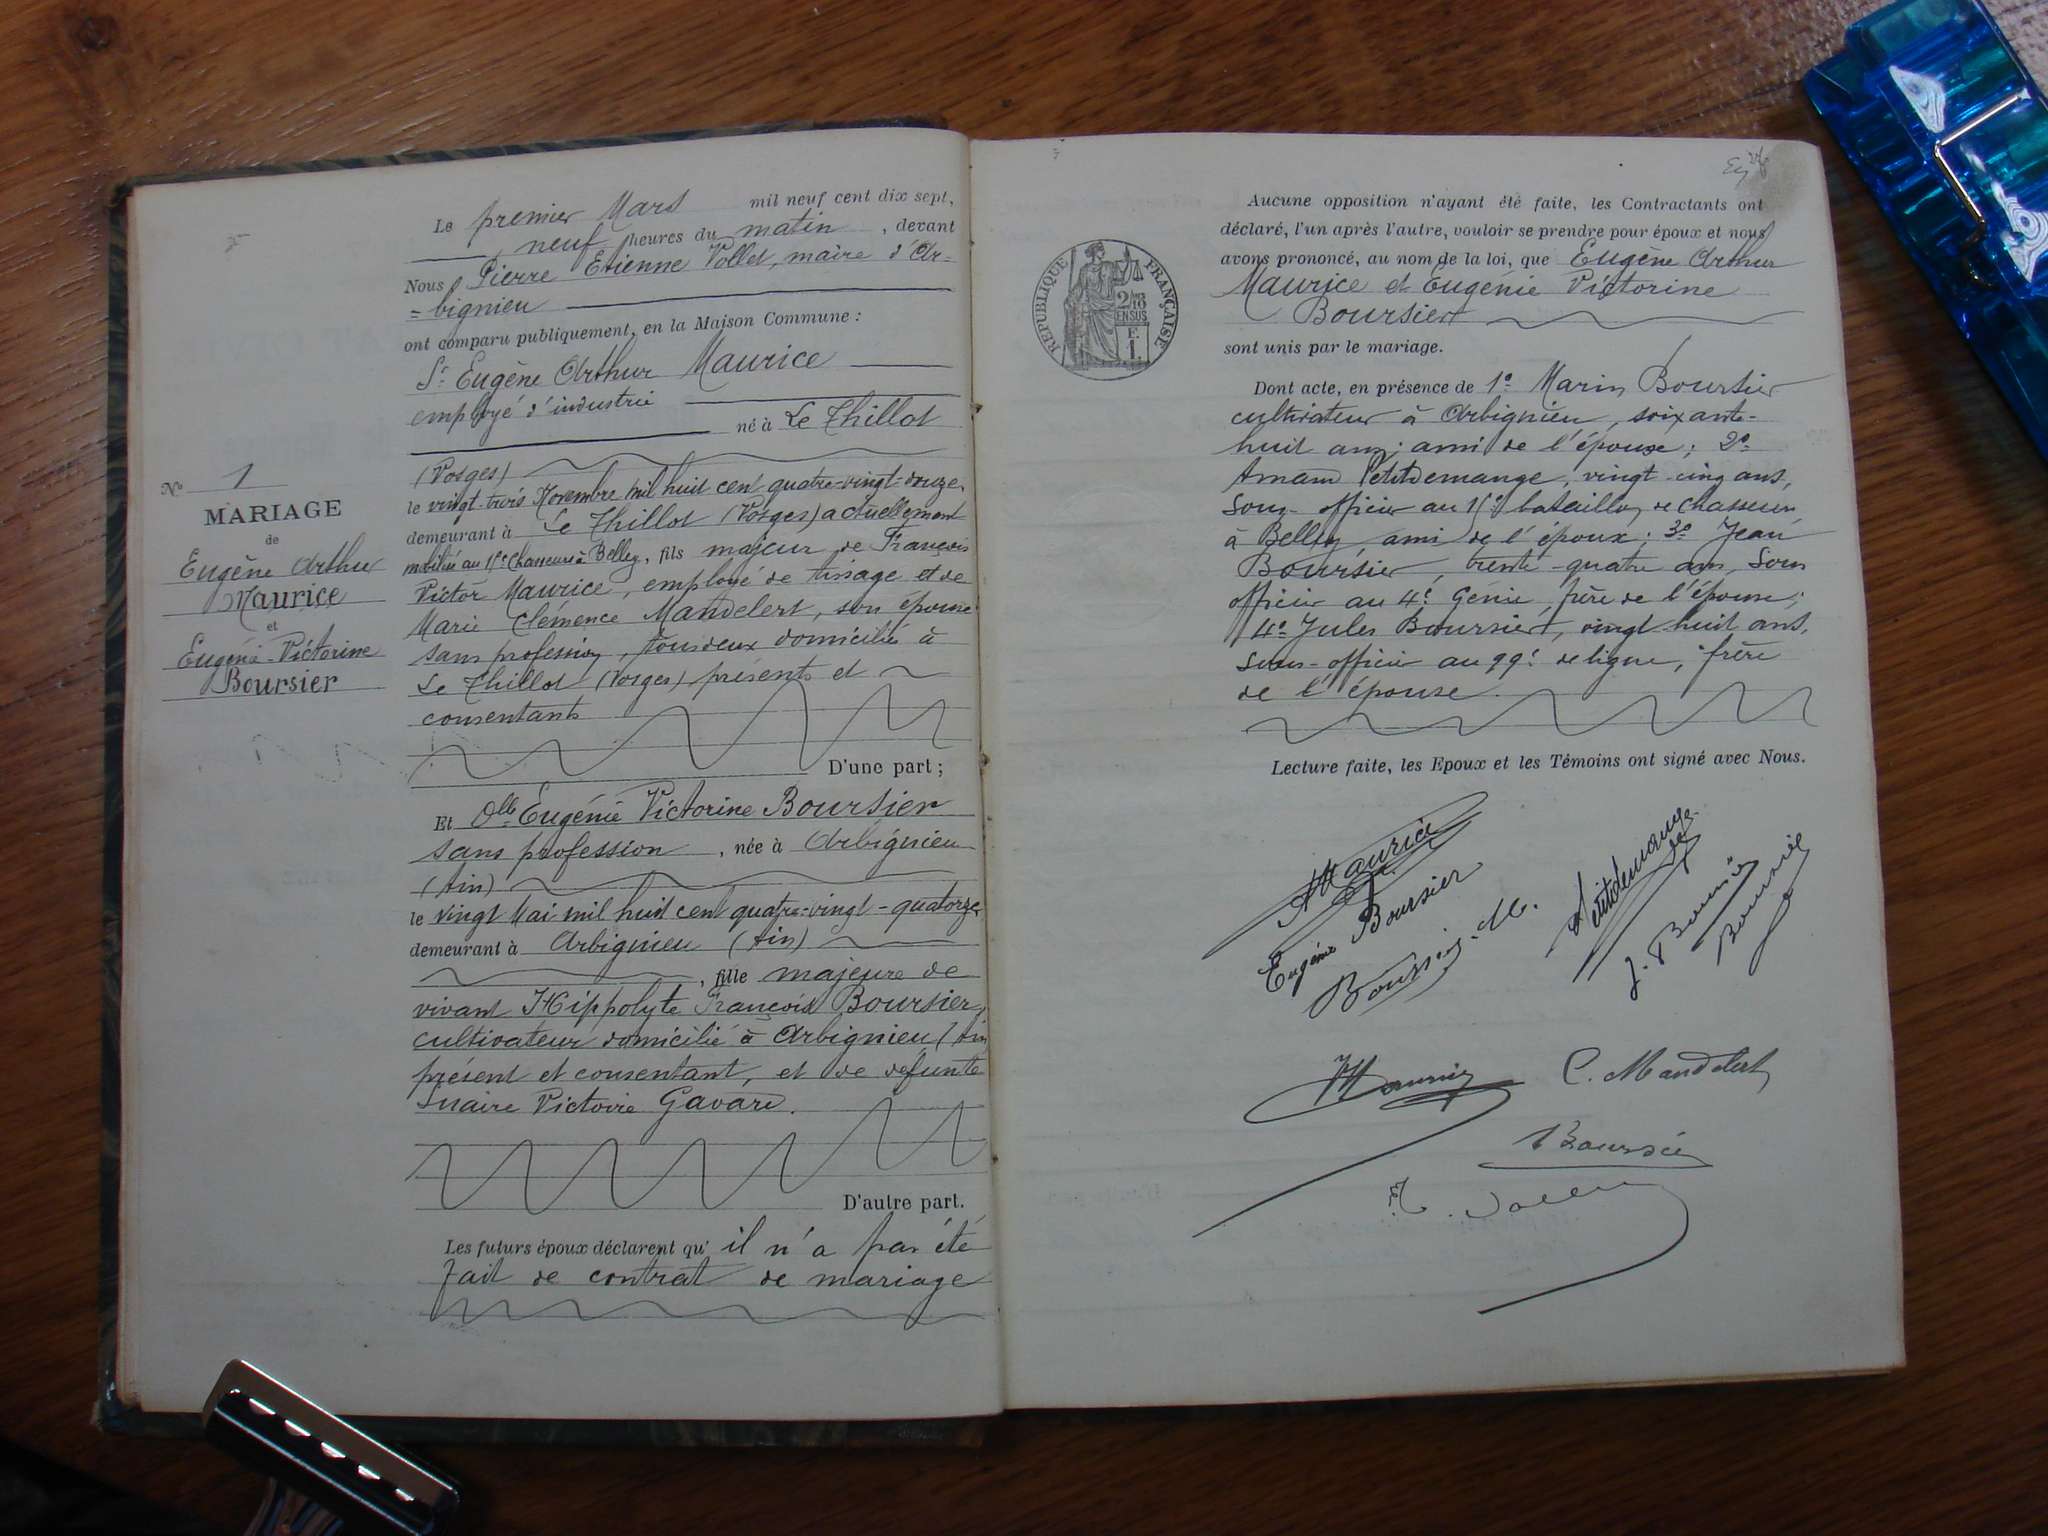 Le premier Mars mil neuf cent dix sept,
neuf heures du matin, devant
Nous Pierre Etienne Vollet, maire d'Ar-
=bignieu
ont comparu publiquement, en la Maison Commune :
Sr Eugène Arthur Maurice
employé d'industrie
né à Le Thillot
(Vosges)
le vingt-trois Novembre mil huit cent quatre-vingt-onze,
demeurant à Le Thillot (Vosges) actuellement
mobilisé au 15e Chasseurs à Belley, fils majeur de François
Victor Maurice, employé de tissage et de
Marie Clémence Mandelert, son épouse
sans profession, tous deux domicilié à
Le Thillot (Vosges) présents et
consentants
D'une part ;
Et Dlle Eugénie Victorine Boursier
sans profession, née à Arbignieu
(Ain)
le vingt Mai mil huit cent quatre-vingt-quatorze
demeurant à Arbignieu (Ain)
, fille majeure de
vivant Hippolyte François Boursier,
cultivateur domicilié à Arbignieu (Ain
présent et consentant, et de defunte
Victoire Gavard.
D'autre part.
Les futurs époux déclarent qu'il n'a pas été
fait de contrat de mariage
No 1
MARIAGE
de
Eugène Arthur
Maurice
et
Eugénie-Victorine
Boursier
RÉPUBLIQUE FRANÇAISE
2 10
EN SUS
F.
1.
Aucune opposition n'ayant été faite, les Contractants ont
déclaré, l'un après l'autre, vouloir se prendre pour époux et nous
avons prononcé, au nom de la loi, que Eugène Arthur
Maurice et Eugénie Victorine
Boursier
sont unis par le mariage.
Dont acte, en présence de 1o Marin Boursier
cultivateur à Arbignieu, soixante-
huit ans ; ami de l'épouse ; 2o
Petitdemange, vingt-cinq ans,
Sous-officier au 15e bataillon de chasseurs
à Belley, ami de l'époux ; 3o Jean
Boursier, trente-quatre ans, Sous
officier au 4e Génie, frère de l'épouse ;
4o Jules Boursier, vingt huit ans,
sous-officier au 99e de ligne, frère
de l'épouse.
Lecture faite, les Epoux et les Témoins ont signé avec Nous.
A Maurice
Eugénie Boursier
Boursier M.
Petitdemange
J. Boursier
Boursier
Maurice
C. Mandelert
Boursier